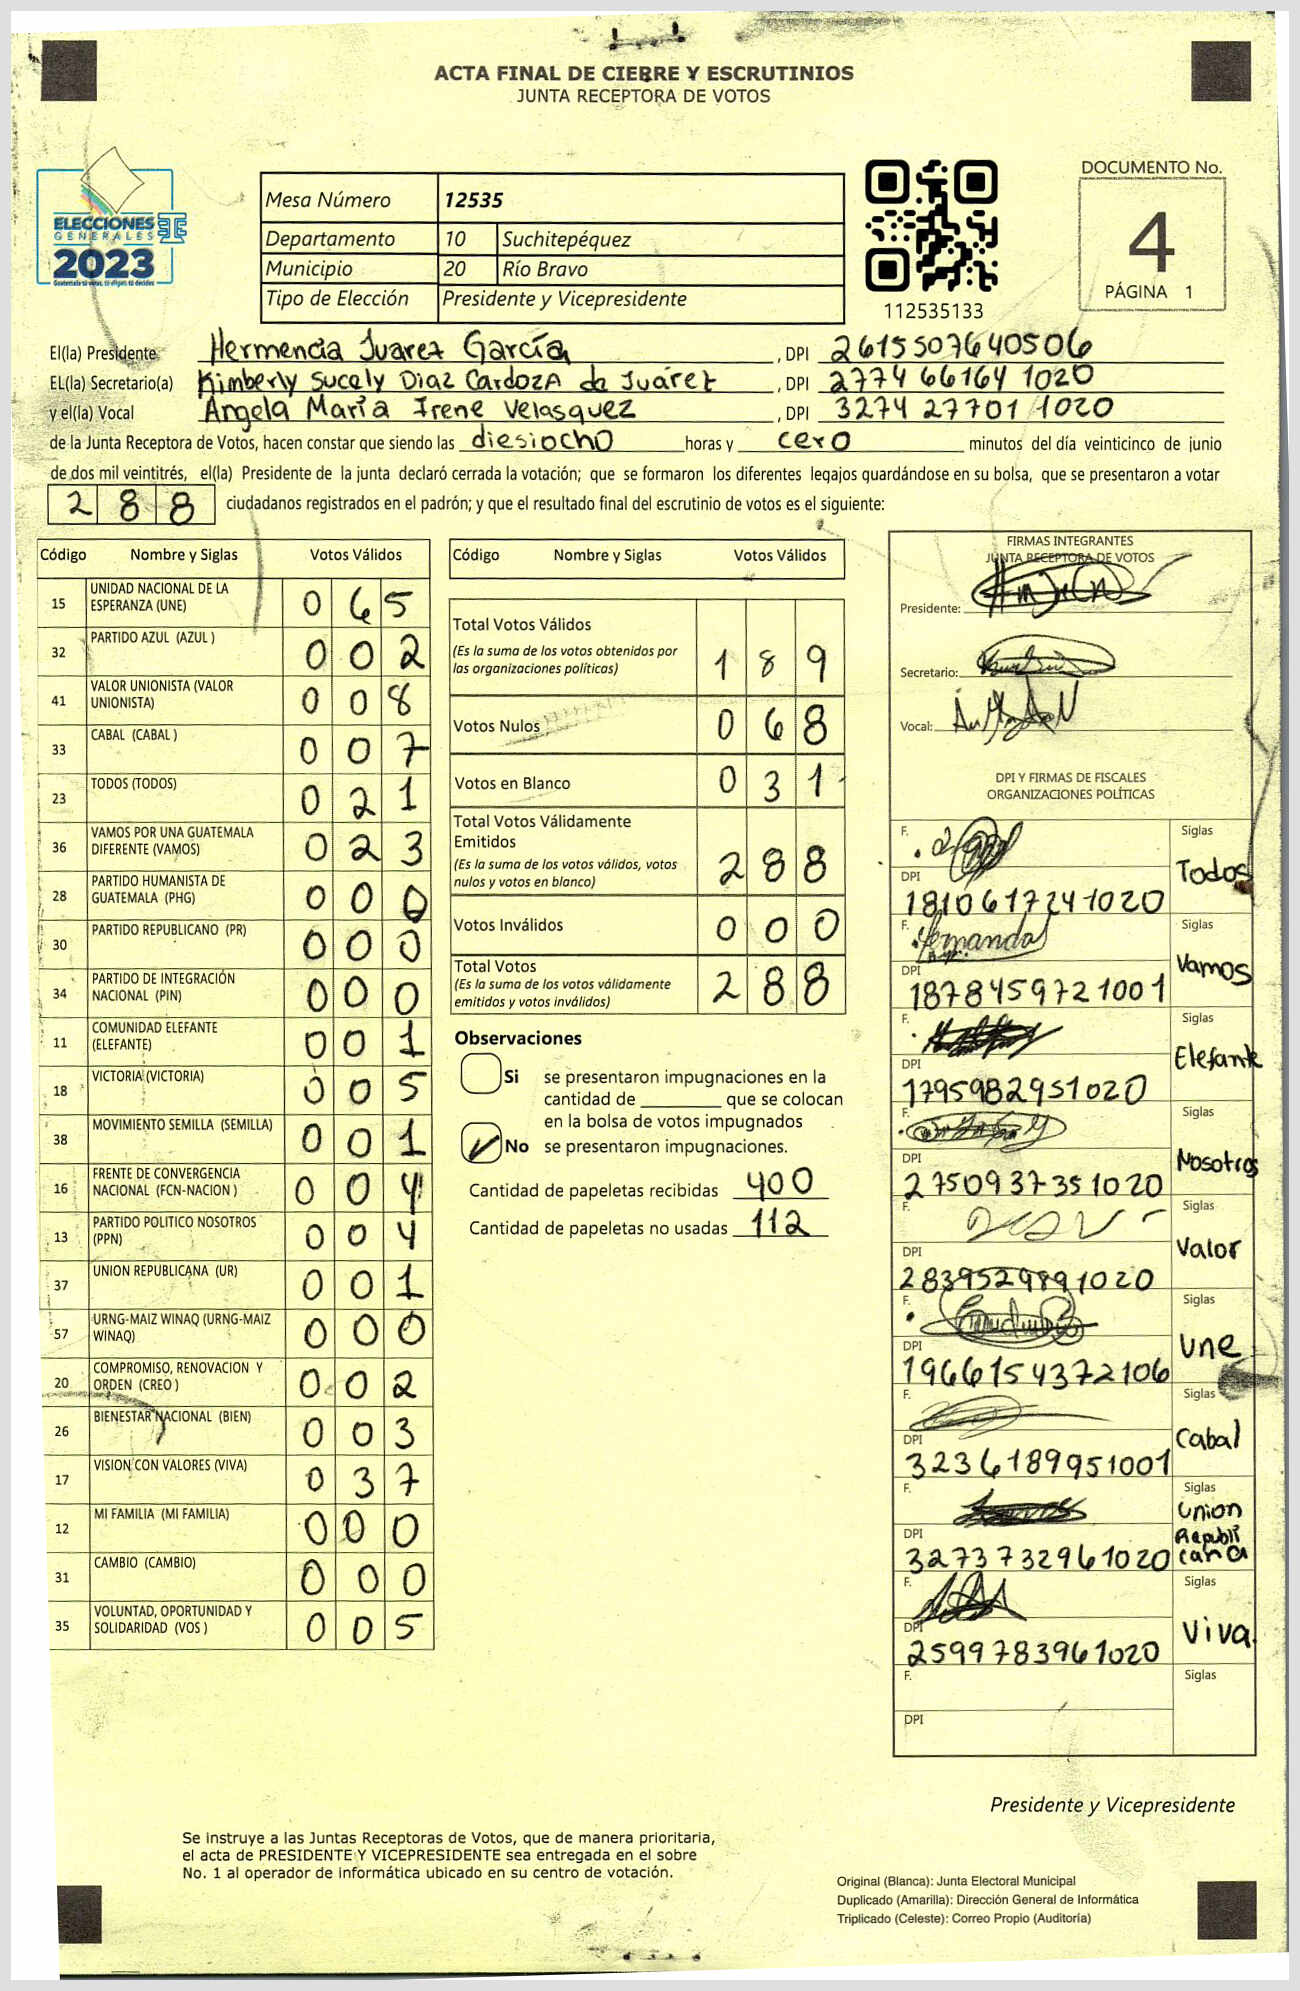 ACTA FINAL DE CIERRE Y ESCRUTINIOS
JUNTA RECEPTORA DE VOTOS
ELECCIONES
GENERALES
2023
Guatemala tú votas, tú eliges tú decides
Mesa Número 12535
Departamento 10 Suchitepéquez
Municipio 20 Río Bravo
Tipo de Elección Presidente y Vicepresidente
112535133
DOCUMENTO No.
4
PÁGINA 1
El(la) Presidente Hermencia Juarez García, DPI 2615507640506
EL(la) Secretario(a) Kimberly Sucely Diaz Cardoza de Juárez, DPI 2774 66164 1020
y el(la) Vocal Angela María Irene Velasquez, DPI 3274 27701 1020
de la Junta Receptora de Votos, hacen constar que siendo las diesiocho horas y cero minutos del día veinticinco de junio
de dos mil veintitrés, el(la) Presidente de la junta declaró cerrada la votación; que se formaron los diferentes legajos guardándose en su bolsa, que se presentaron a votar
288 ciudadanos registrados en el padrón; y que el resultado final del escrutinio de votos es el siguiente:
Código Nombre y Siglas Votos Válidos
15 UNIDAD NACIONAL DE LA ESPERANZA (UNE) 0 6 5
32 PARTIDO AZUL (AZUL ) 0 0 2
41 VALOR UNIONISTA (VALOR UNIONISTA) 0 0 8
33 CABAL (CABAL ) 0 0 7
23 TODOS (TODOS) 0 2 1
36 VAMOS POR UNA GUATEMALA DIFERENTE (VAMOS) 0 2 3
28 PARTIDO HUMANISTA DE GUATEMALA (PHG) 0 0 0
30 PARTIDO REPUBLICANO (PR) 0 0 0
34 PARTIDO DE INTEGRACIÓN NACIONAL (PIN) 0 0 0
11 COMUNIDAD ELEFANTE (ELEFANTE) 0 0 1
18 VICTORIA (VICTORIA) 0 0 5
38 MOVIMIENTO SEMILLA (SEMILLA) 0 0 1
16 FRENTE DE CONVERGENCIA NACIONAL (FCN-NACION ) 0 0 4
13 PARTIDO POLITICO NOSOTROS (PPN) 0 0 4
37 UNION REPUBLICANA (UR) 0 0 1
57 URNG-MAIZ WINAQ (URNG-MAIZ WINAQ) 0 0 0
20 COMPROMISO, RENOVACION Y ORDEN (CREO ) 0 0 2
26 BIENESTAR NACIONAL (BIEN) 0 0 3
17 VISION CON VALORES (VIVA) 0 3 7
12 MI FAMILIA (MI FAMILIA) 0 0 0
31 CAMBIO (CAMBIO) 0 0 0
35 VOLUNTAD, OPORTUNIDAD Y SOLIDARIDAD (VOS ) 0 0 5
Código Nombre y Siglas Votos Válidos
Total Votos Válidos
(Es la suma de los votos obtenidos por
las organizaciones políticas) 1 8 9
Votos Nulos 0 6 8
Votos en Blanco 0 3 1
Total Votos Válidamente
Emitidos
(Es la suma de los votos válidos, votos
nulos y votos en blanco) 2 8 8
Votos Inválidos 0 0 0
Total Votos
(Es la suma de los votos válidamente
emitidos y votos inválidos) 2 8 8
Observaciones
Si se presentaron impugnaciones en la
cantidad de ________ que se colocan
en la bolsa de votos impugnados
No se presentaron impugnaciones.
Cantidad de papeletas recibidas 400
Cantidad de papeletas no usadas 112
FIRMAS INTEGRANTES
JUNTA RECEPTORA DE VOTOS
Presidente:
Secretario:
Vocal:
DPI Y FIRMAS DE FISCALES
ORGANIZACIONES POLÍTICAS
F. Siglas
Todos
DPI 1810617241020
F. Siglas
Vamos
DPI 1878459721001
F. Siglas
Elefante
DPI 1795982951020
F. Siglas
Nosotros
DPI 2750937351020
F. Siglas
Valor
DPI 2839529891020
F. Siglas
Une
DPI 1966154372106
F. Siglas
Cabal
DPI 3236189951001
F. Siglas
Union
Republi
cana
DPI 3273732961020
F. Siglas
Viva
DPI 2599783961020
F. Siglas
DPI
Presidente y Vicepresidente
Se instruye a las Juntas Receptoras de Votos, que de manera prioritaria,
el acta de PRESIDENTE Y VICEPRESIDENTE sea entregada en el sobre
No. 1 al operador de informática ubicado en su centro de votación.
Original (Blanca): Junta Electoral Municipal
Duplicado (Amarilla): Dirección General de Informática
Triplicado (Celeste): Correo Propio (Auditoría)